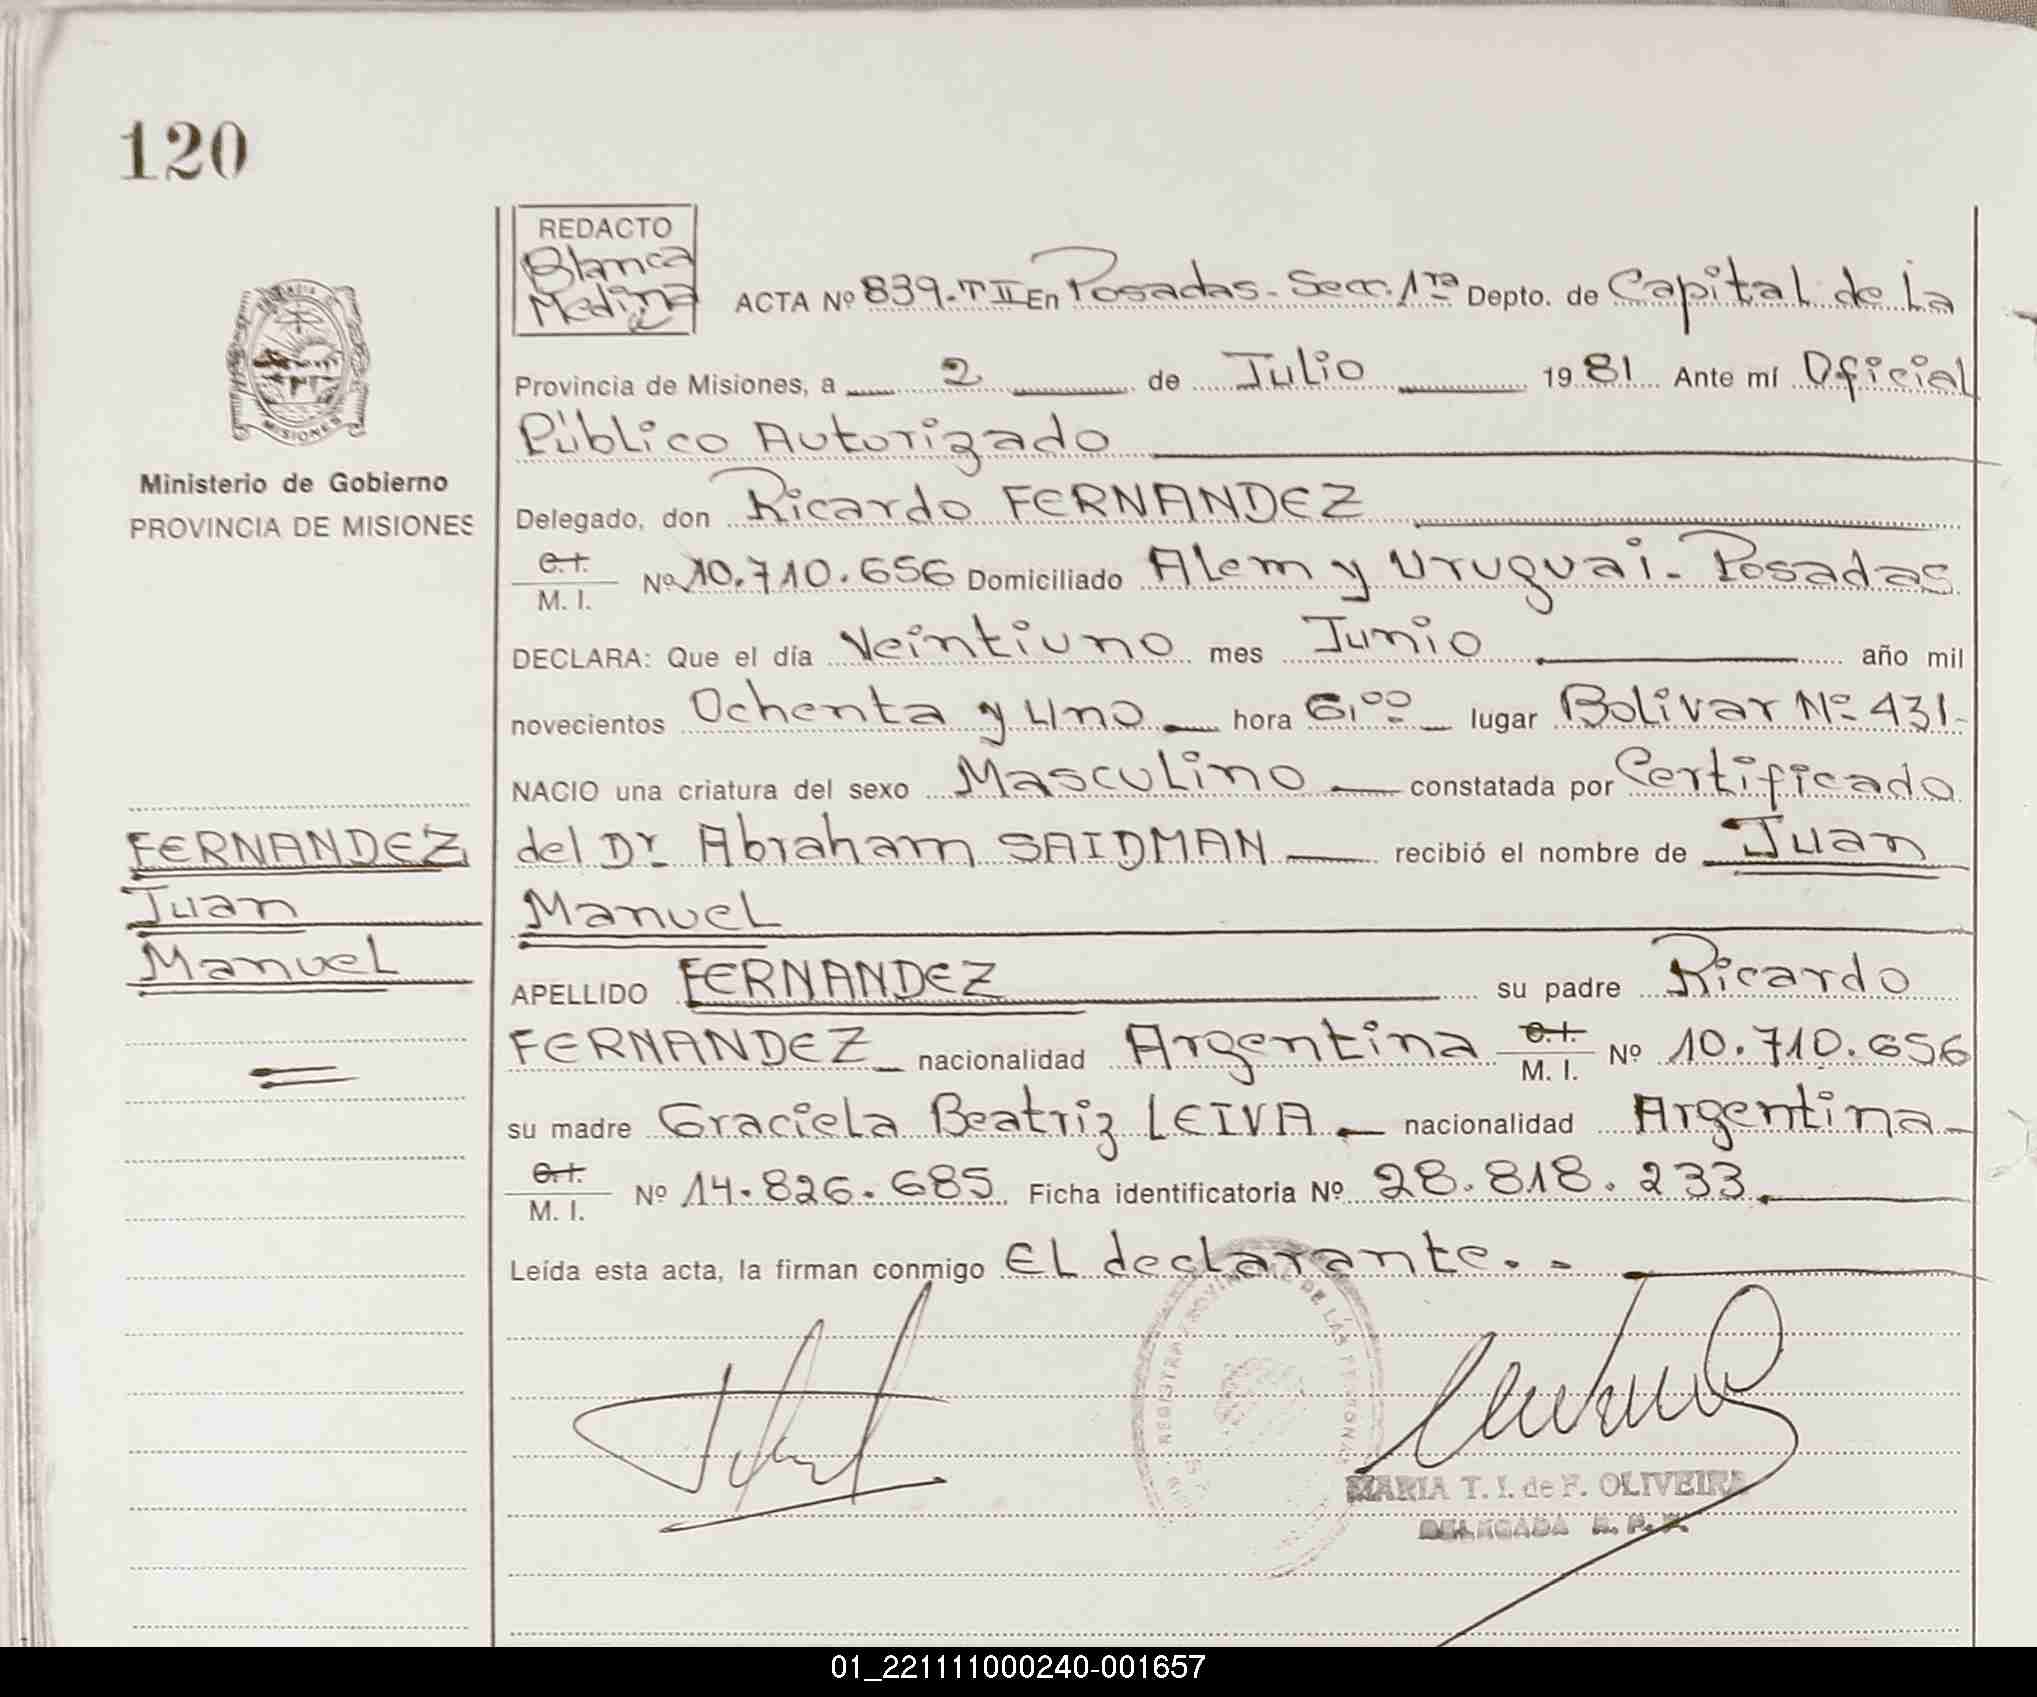 120
REDACTO
Blanca
Medina
ACTA Nº 839.TII En Posadas-Secc. 1ra Depto. de Capital de La
Provincia de Misiones, a 2 de Julio 1981 Ante mí Oficial
Público Autorizado
Ministerio de Gobierno
PROVINCIA DE MISIONES
MISIONES
Delegado, don Ricardo FERNANDEZ
C.I.
M. I. Nº 10.710.656 Domiciliado Alem y Uruguai-Posadas
DECLARA: Que el día Veintiuno mes Junio año mil
novecientos Ochenta y Uno hora 6,00 lugar Bolivar Nº 431-
NACIO una criatura del sexo Masculino constatada por Certificado
del Dr. Abraham SAIDMAN recibió el nombre de Juan
Manuel
FERNANDEZ
Juan
Manuel
APELLIDO FERNANDEZ su padre Ricardo
FERNANDEZ nacionalidad Argentina C.I. M. I. Nº 10.710.656
su madre Graciela Beatriz LEIVA nacionalidad Argentina
C.I.
M. I. Nº 14.826.685 Ficha identificatoria Nº 28.818.233
Leída esta acta, la firman conmigo El declarante..
MARIA T. I. de F. OLIVEIRA
DELEGADA R. P. P.
01_221111000240-001657